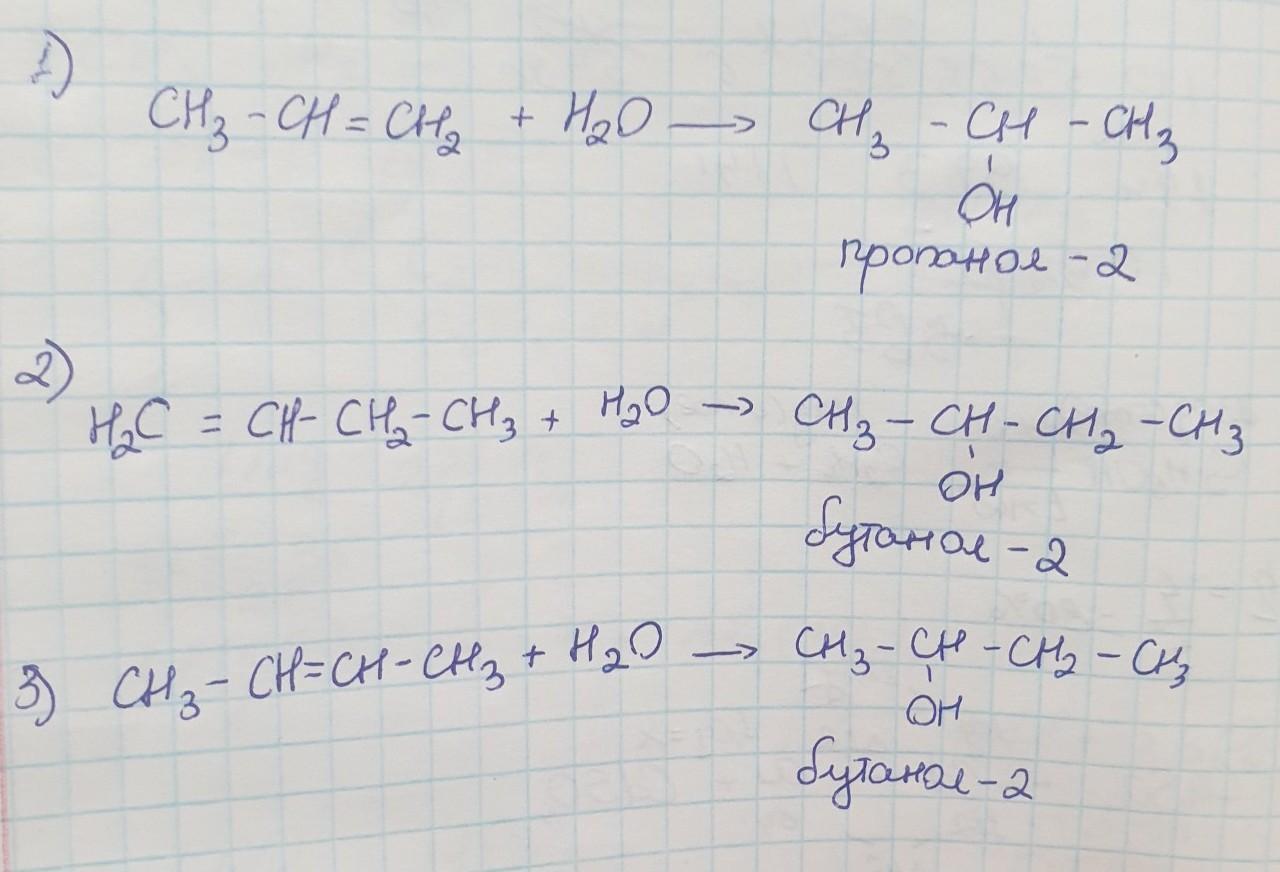 1)
CH₃ - CH = CH₂ + H₂O ⟶ CH₃ - CH - CH₃
OH
пропанол - 2
2)
H₂C = CH - CH₂ - CH₃ + H₂O → CH₃ - CH - CH₂ - CH₃
OH
бутанол - 2
3) CH₃ - CH = CH - CH₃ + H₂O ⟶ CH₃ - CH - CH₂ - CH₃
OH
бутанол - 2